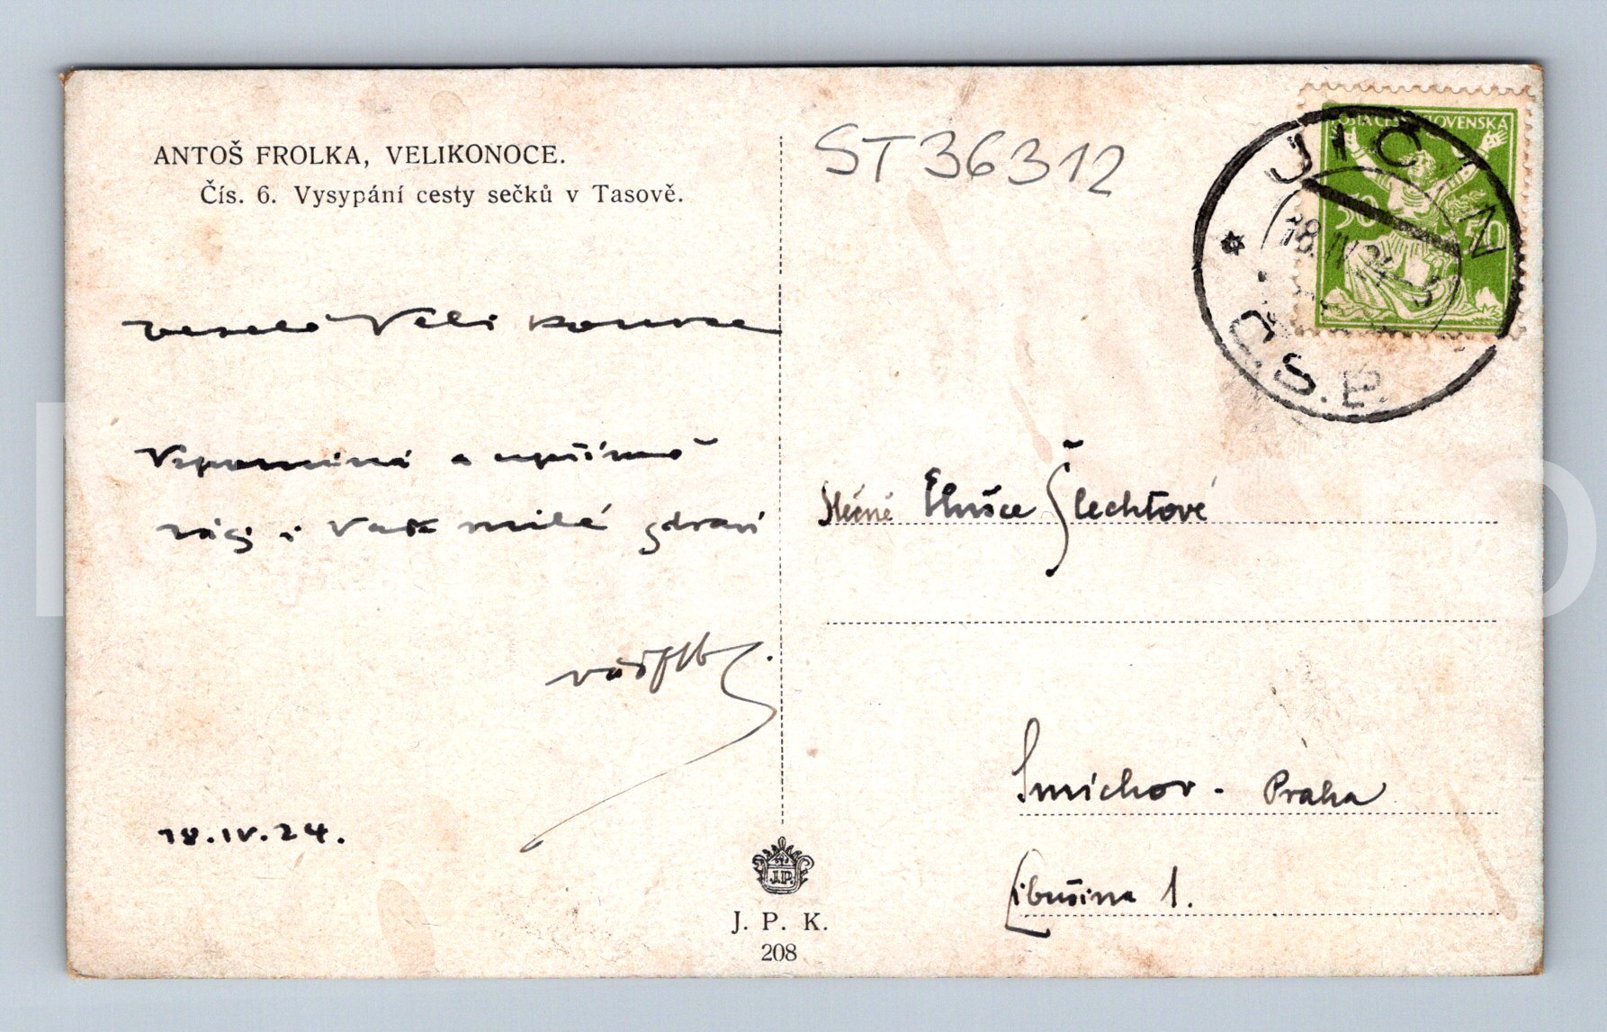 ANTOŠ FROLKA, VELIKONOCE.
Čís. 6. Vysypání cesty sečků v Tasově.
ST36312
POŠTA ČESKOSLOVENSKÁ
50 50
JIČÍN
18.IV.24
Č.S.P.
veselé Veli konoce
Vzpomíná a upřímně
milé zdraví
Slečně Elušce Šlechtové
Smíchov - Praha
Libušina 1.
18.IV.24.
J.P.
J. P. K.
208